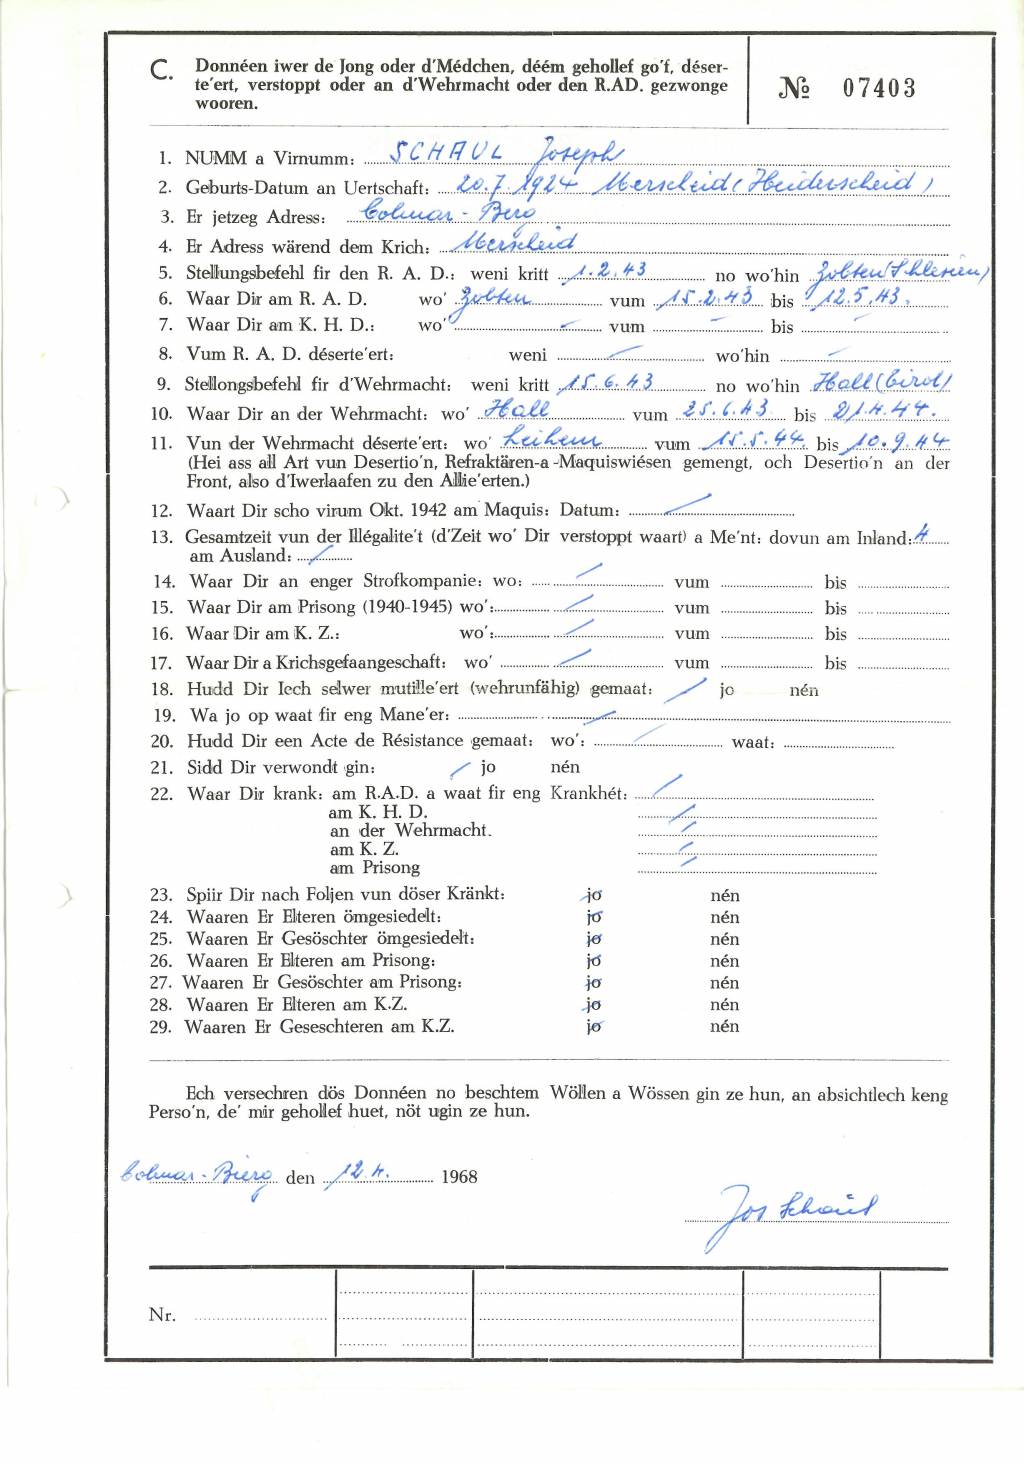 C. Donnéen iwer de Jong oder d'Médchen, déém gehollef go'f, déser-
te'ert, verstoppt oder an d'Wehrmacht oder den R.AD. gezwonge
wooren.
№ 07403
1. NUMM a Virnumm: SCHAUL Joseph
2. Geburts-Datum an Uertschaft: 20.7.1924 Merscheid (Heiderscheid)
3. Er jetzeg Adress: Colmar-Berg
4. Er Adress wärend dem Krich: Merscheid
5. Stellungsbefehl fir den R. A. D.: weni kritt 1.2.43 no wo'hin Zobten (Schlesien)
6. Waar Dir am R. A. D. wo' Zobten vum 15.2.43 bis 12.5.43.
7. Waar Dir am K. H. D.: wo' — vum — bis —
8. Vum R. A. D. déserte'ert: weni — wo'hin —
9. Stellongsbefehl fir d'Wehrmacht: weni kritt 15.6.43 no wo'hin Hall (Tirol)
10. Waar Dir an der Wehrmacht: wo' Hall vum 25.6.43 bis 21.4.44.
11. Vun der Wehrmacht déserte'ert: wo' vum 15.5.44. bis 10.9.44
(Hei ass all Art vun Desertio'n, Refraktären-a-Maquiswiésen gemengt, och Desertio'n an der
Front, also d'Iwerlaafen zu den Allie'erten.)
12. Waart Dir scho virum Okt. 1942 am Maquis: Datum: /
13. Gesamtzeit vun der Illégalite't (d'Zeit wo' Dir verstoppt waart) a Me'nt: dovun am Inland: 4
am Ausland: /
14. Waar Dir an enger Strofkompanie: wo: / vum bis
15. Waar Dir am Prisong (1940-1945) wo': / vum bis
16. Waar Dir am K. Z.: wo': / vum bis
17. Waar Dir a Krichsgefaangeschaft: wo' / vum bis
18. Hudd Dir Iech selwer mutille'ert (wehrunfähig) gemaat: / jo nén
19. Wa jo op waat fir eng Mane'er: /
20. Hudd Dir een Acte de Résistance gemaat: wo': / waat:
21. Sidd Dir verwondt gin: / jo nén
22. Waar Dir krank: am R.A.D. a waat fir eng Krankhét: /
am K. H. D. /
an der Wehrmacht. /
am K. Z. /
am Prisong /
23. Spiir Dir nach Foljen vun döser Kränkt: jo nén
24. Waaren Er Elteren ömgesiedelt: jo nén
25. Waaren Er Gesöschter ömgesiedelt: jo nén
26. Waaren Er Elteren am Prisong: jo nén
27. Waaren Er Gesöschter am Prisong: jo nén
28. Waaren Er Elteren am K.Z. jo nén
29. Waaren Er Geseschteren am K.Z. jo nén
Ech versechren dös Donnéen no beschtem Wöllen a Wössen gin ze hun, an absichtlech keng
Perso'n, de' mir gehollef huet, nöt ugin ze hun.
Colmar-Bierg den 12.4. 1968
Jos Schaul
Nr.